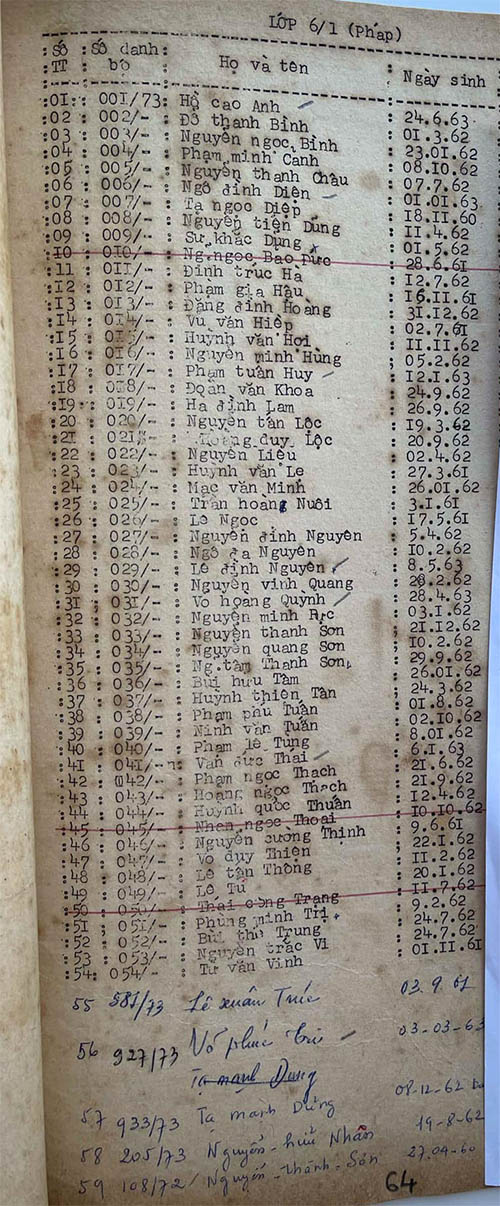 LỚP 6/1 (Pháp)
Số TT : Số danh bộ : Họ và tên : Ngày sinh
01 : 001/73 : Hồ cao Anh : 24.6.63
02 : 002/- : Đỗ thanh Bình : 01.3.62
03 : 003/- : Nguyễn ngọc Bình : 23.01.62
04 : 004/- : Phạm minh Cảnh : 08.10.62
05 : 005/- : Nguyễn thanh Châu : 07.7.62
06 : 006/- : Ngô đình Diện : 01.01.63
07 : 007/- : Tạ ngọc Diệp : 18.11.60
08 : 008/- : Nguyễn tiện Dũng : 11.4.62
09 : 009/- : Sử khắc Dụng : 01.5.62
10 : 010/- : Ng.ngọc Bảo Đức : 28.6.61
11 : 011/- : Đinh trúc Hà : 12.7.62
12 : 012/- : Phạm gia Hậu : 16.11.61
13 : 013/- : Đặng đình Hoàng : 31.12.62
14 : 014/- : Vu văn Hiệp : 02.7.61
15 : 015/- : Huỳnh văn Hơi : 11.11.62
16 : 016/- : Nguyễn minh Hùng : 05.2.62
17 : 017/- : Phạm tuấn Huy : 12.1.63
18 : 018/- : Đoàn văn Khoa : 24.9.62
19 : 019/- : Hà đình Lam : 26.9.62
20 : 020/- : Nguyễn tấn Lộc : 19.3.62
21 : 021/- : Hoàng duy Lộc : 20.9.62
22 : 022/- : Nguyễn Liêu : 02.4.62
23 : 023/- : Huỳnh văn Le : 27.3.61
24 : 024/- : Mạc văn Minh : 26.01.62
25 : 025/- : Trần hoàng Nuôi : 3.1.61
26 : 026/- : Lê Ngọc : 17.5.61
27 : 027/- : Nguyễn đình Nguyên : 5.4.62
28 : 028/- : Ngô đa Nguyên : 10.2.62
29 : 029/- : Lê định Nguyên : 8.5.63
30 : 030/- : Nguyễn vinh Quang : 28.2.62
31 : 031/- : Võ hoàng Quỳnh : 28.4.63
32 : 032/- : Nguyễn minh Rực : 03.1.62
33 : 033/- : Nguyễn thanh Sơn : 21.12.62
34 : 034/- : Nguyễn quang Sơn : 10.2.62
35 : 035/- : Ng.tâm Thanh Sơn : 29.9.62
36 : 036/- : Bùi hưu Tâm : 26.01.62
37 : 037/- : Huỳnh thiện Tân : 24.3.62
38 : 038/- : Phạm phú Tuấn : 01.8.62
39 : 039/- : Ninh văn Tuấn : 02.10.62
40 : 040/- : Phạm lê Tùng : 8.01.62
41 : 041/- : Văn đức Thái : 6.1.63
42 : 042/- : Phạm ngọc Thạch : 21.6.62
43 : 043/- : Hoàng ngọc Thạch : 21.9.62
44 : 044/- : Huỳnh quốc Thuần : 12.4.62
45 : 045/- : Nhan ngọc Thoại : 10.10.62
46 : 046/- : Nguyễn cường Thịnh : 9.6.61
47 : 047/- : Võ duy Thiện : 22.1.62
48 : 048/- : Lê tấn Thông : 11.2.62
49 : 049/- : Lê Tú : 20.1.62
50 : 050/- : Thái công Trang : 11.7.62
51 : 051/- : Phùng minh Trí : 9.2.62
52 : 052/- : Bùi thế Trung : 24.7.62
53 : 053/- : Nguyễn trắc Vi : 24.7.62
54 : 054/- : Từ văn Vinh : 01.11.61
55 581/73 Lê xuân Trúc 03.9.61
56 927/73 Võ phúc 03-03-63
Tạ mạnh Dung
57 933/73 Tạ mạnh Dũng 08-12-62
58 205/73 Nguyễn-hữu Nhân 19-8-62
59 108/72 Nguyễn-thành-Sơn 27.04-60
64